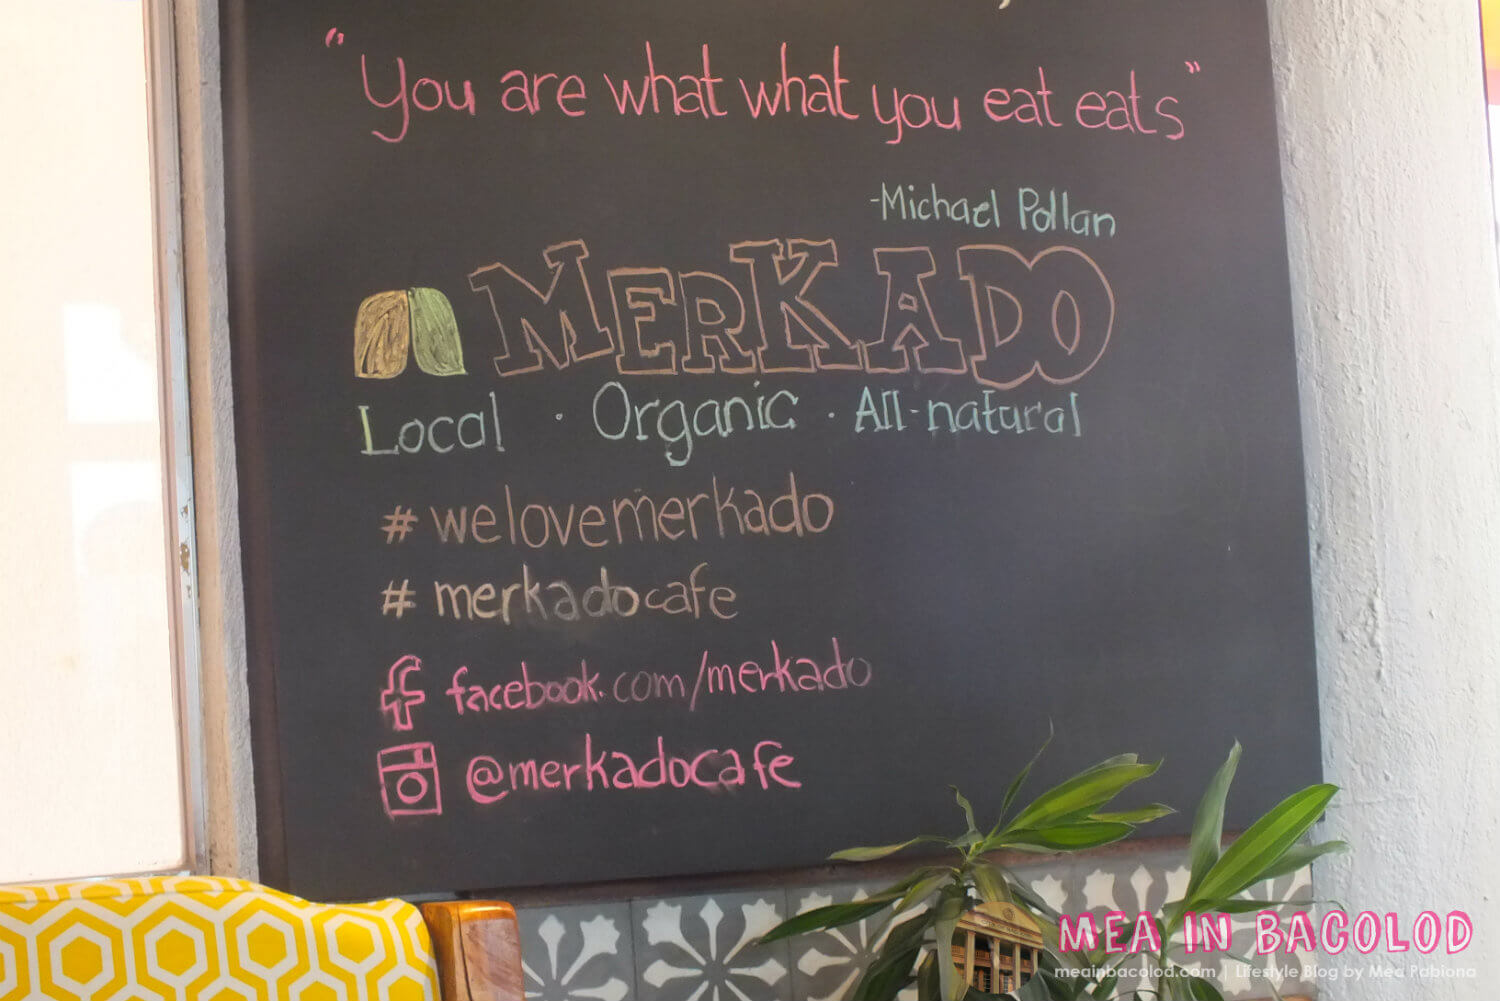 "You are what what you eat eats"
-Michael Pollan
MERKADO
Local · Organic · All-natural
#welovemerkado
#merkadocafe
facebook.com/merkado
@merkadocafe
MEA IN BACOLOD
meainbacolod.com | Lifestyle Blog by Mea Pabiona